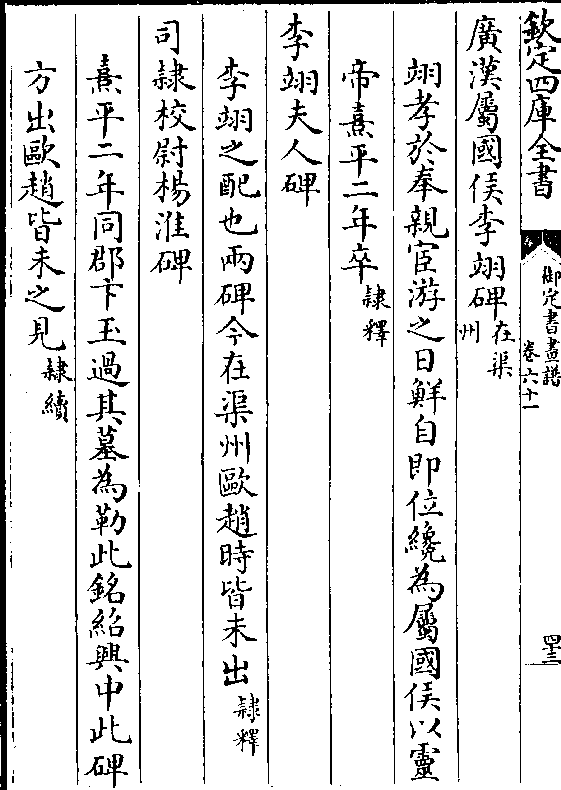 欽定四庫全書
御定書畫譜
卷六十一
四十三
廣漢屬國侯李翊碑在渠州
翊孝於奉親宦游之日鮮自即位纔為屬國侯以靈
帝熹平二年卒隸釋
李翊夫人碑
李翊之配也兩碑今在渠州歐趙時皆未出隸釋
司隸校尉楊淮碑
熹平二年同郡卞玉過其墓為勒此銘紹興中此碑
方出歐趙皆未之見隸續